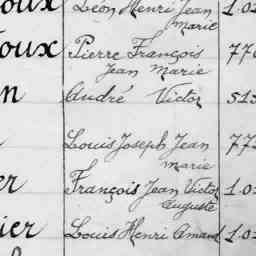 oux Léon Henri Jean 1.0
Marie
oux Pierre François 77
Jean Marie
n André Victor 515
Louis Joseph Jean 77
Marie
er François Jean Victor 1.0
Auguste
ier Louis Henri Amand 1.0